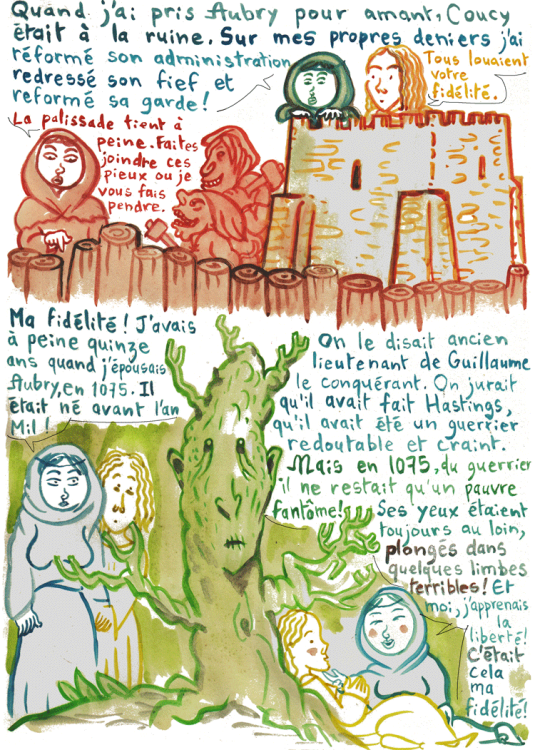 Quand j'ai pris Aubry pour amant, Coucy
était à la ruine. Sur mes propres deniers j'ai
réformé son administration
redressé son fief et
reformé sa garde !
Tous louaient
votre
fidélité.
La palissade tient à
peine. Faites
joindre ces
pieux ou je
vous fais
pendre.
Ma fidélité ! J'avais
à peine quinze
ans quand j'épousais
Aubry, en 1075. Il
était né avant l'an
Mil !
On le disait ancien
lieutenant de Guillaume
le conquérant. On jurait
qu'il avait fait Hastings,
qu'il avait été un guerrier
redoutable et craint.
Mais en 1075, du guerrier
il ne restait qu'un pauvre
fantôme ! Ses yeux étaient
toujours au loin,
plongés dans
quelques limbes
terribles ! Et
moi, j'apprenais
la
liberté !
C'était
cela
ma
fidélité !